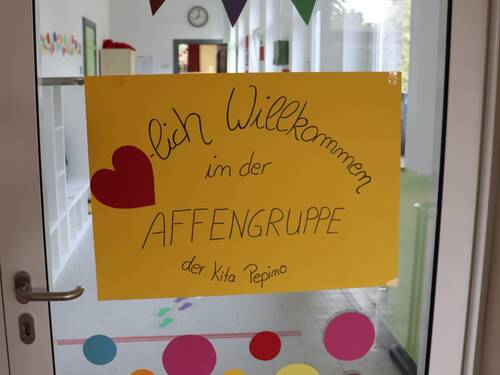 -lich Willkommen
in der
AFFENGRUPPE
der Kita Pepino